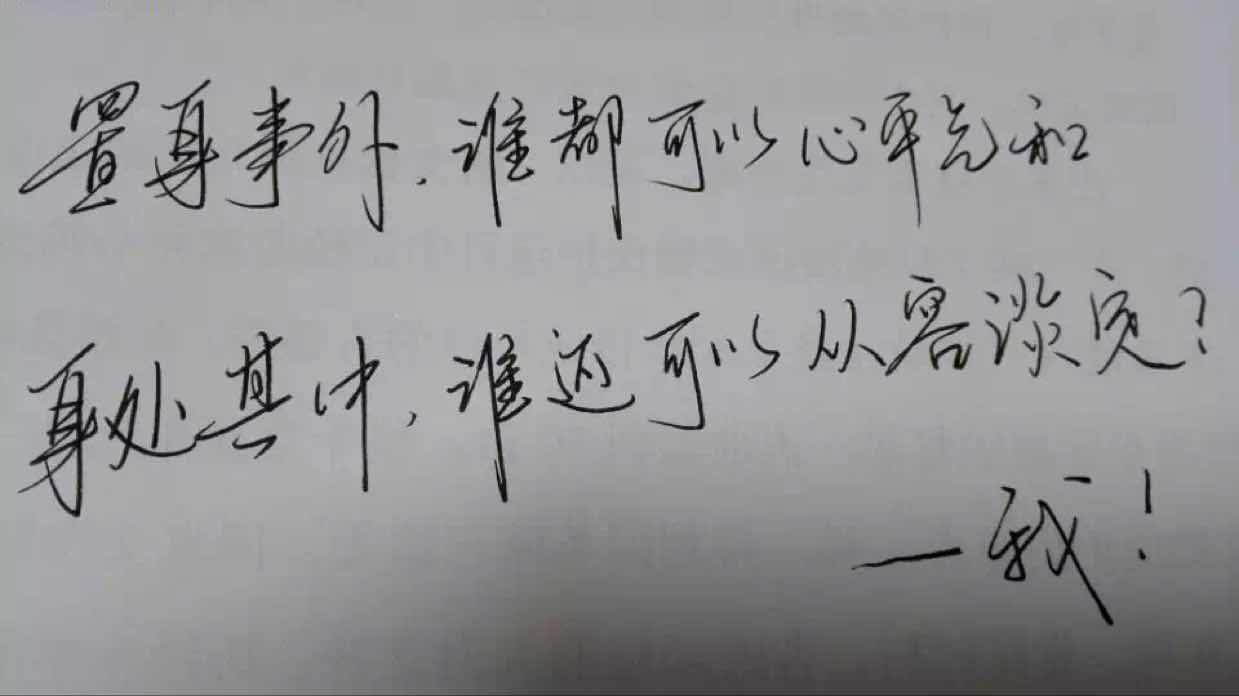 置身事外,谁都可以心平气和
身处其中,谁还可以从容谈笑?
—我!